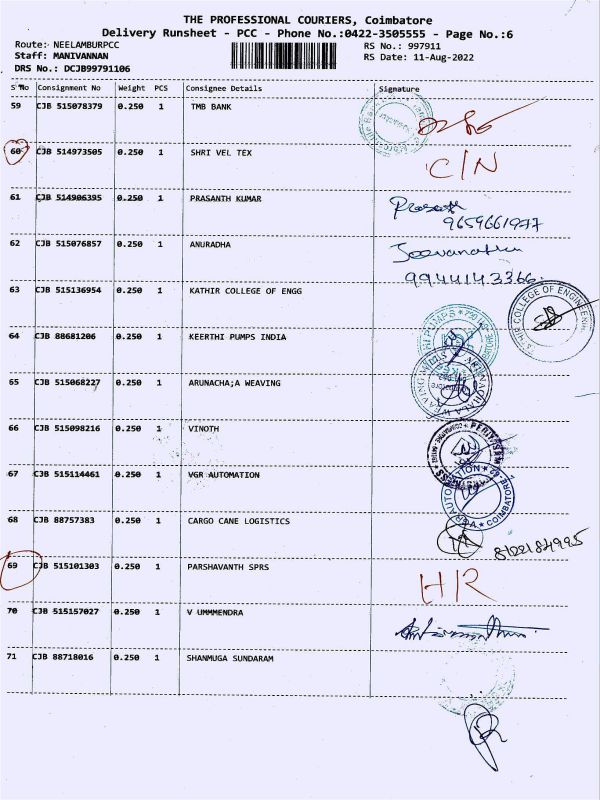 THE PROFESSIONAL COURIERS, Coimbatore
Delivery Runsheet - PCC - Phone No.:0422-3505555 - Page No.:6
Route: NEELAMBURPCC RS No.: 997911
Staff: MANIVANNAN RS Date: 11-Aug-2022
DRS No.: DCJB99791106
S No Consignment No Weight PCS Consignee Details Signature
59 CJB 515078379 0.250 1 TMB BANK
60 CJB 514973505 0.250 1 SHRI VEL TEX C/N
61 CJB 514906395 0.250 1 PRASANTH KUMAR
9659661977
62 CJB 515076857 0.250 1 ANURADHA
9944143366
63 CJB 515136954 0.250 1 KATHIR COLLEGE OF ENGG COLLEGE OF ENGINEERING
64 CJB 88681206 0.250 1 KEERTHI PUMPS INDIA PUMPS
65 CJB 515068227 0.250 1 ARUNACHA;A WEAVING
66 CJB 515098216 0.250 1 VINOTH
67 CJB 515114461 0.250 1 VGR AUTOMATION COIMBATORE-62
68 CJB 88757383 0.250 1 CARGO CANE LOGISTICS
69 CJB 515101303 0.250 1 PARSHAVANTH SPRS HR
70 CJB 515157027 0.250 1 V UMMMENDRA
71 CJB 88718016 0.250 1 SHANMUGA SUNDARAM